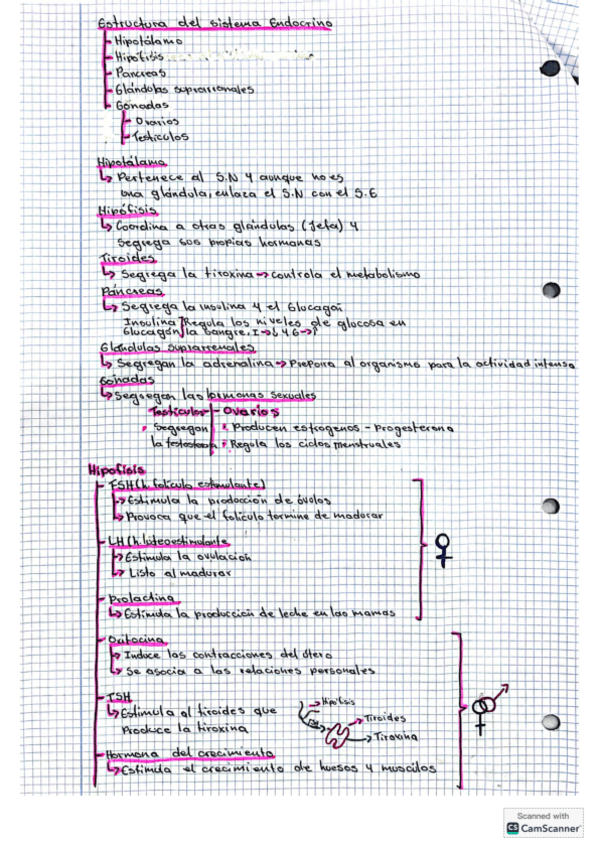 Estructura del sistema Endocrino
Hipotálamo
Hipófisis
Pancreas
Glándulas suprarrenales
Gónadas
Ovarios
Testículos
Hipotálamo
↳ Pertenece al S.N y aunque no es
una glándula, enlaza el S.N con el S.E
Hipófisis
↳ Coordina a otras glándulas (Jefa) y
Segrega sus propias hormonas
Tiroides
↳ Segrega la tiroxina → controla el metabolismo
Páncreas
↳ Segrega la insulina y el Glucagón
Insulina Regula los niveles de glucosa en
Glucagón la sangre, I→↓ y G→↑
Glándulas suprarrenales
↳ Segregan la adrenalina → Prepara al organismo para la actividad intensa
Gónadas
↳ Segregan las hormonas sexuales
Testículos - Ovarios
Segregan Producen estrogenos - Progesterona
la testosterona Regula los ciclos menstruales
Hipófisis
FSH (h. folículo estimulante)
↳ Estimula la producción de óvulos
↳ Provoca que el folículo termine de madurar
LH (h. luteoestimulante
↳ Estimula la ovulación
↳ Listo al madurar
Prolactina
↳ Estimula la producción de leche en las mamas
♀
Oxitocina
↳ Induce las contracciones del útero
↳ Se asocia a las relaciones personales
TSH
↳ Estimula al tiroides que
Produce la tiroxina
Hipófisis
TSH
Tiroides
Tiroxina
Hormona del crecimiento
↳ Estimula el crecimiento de huesos y musculos
Scanned with
CS CamScanner